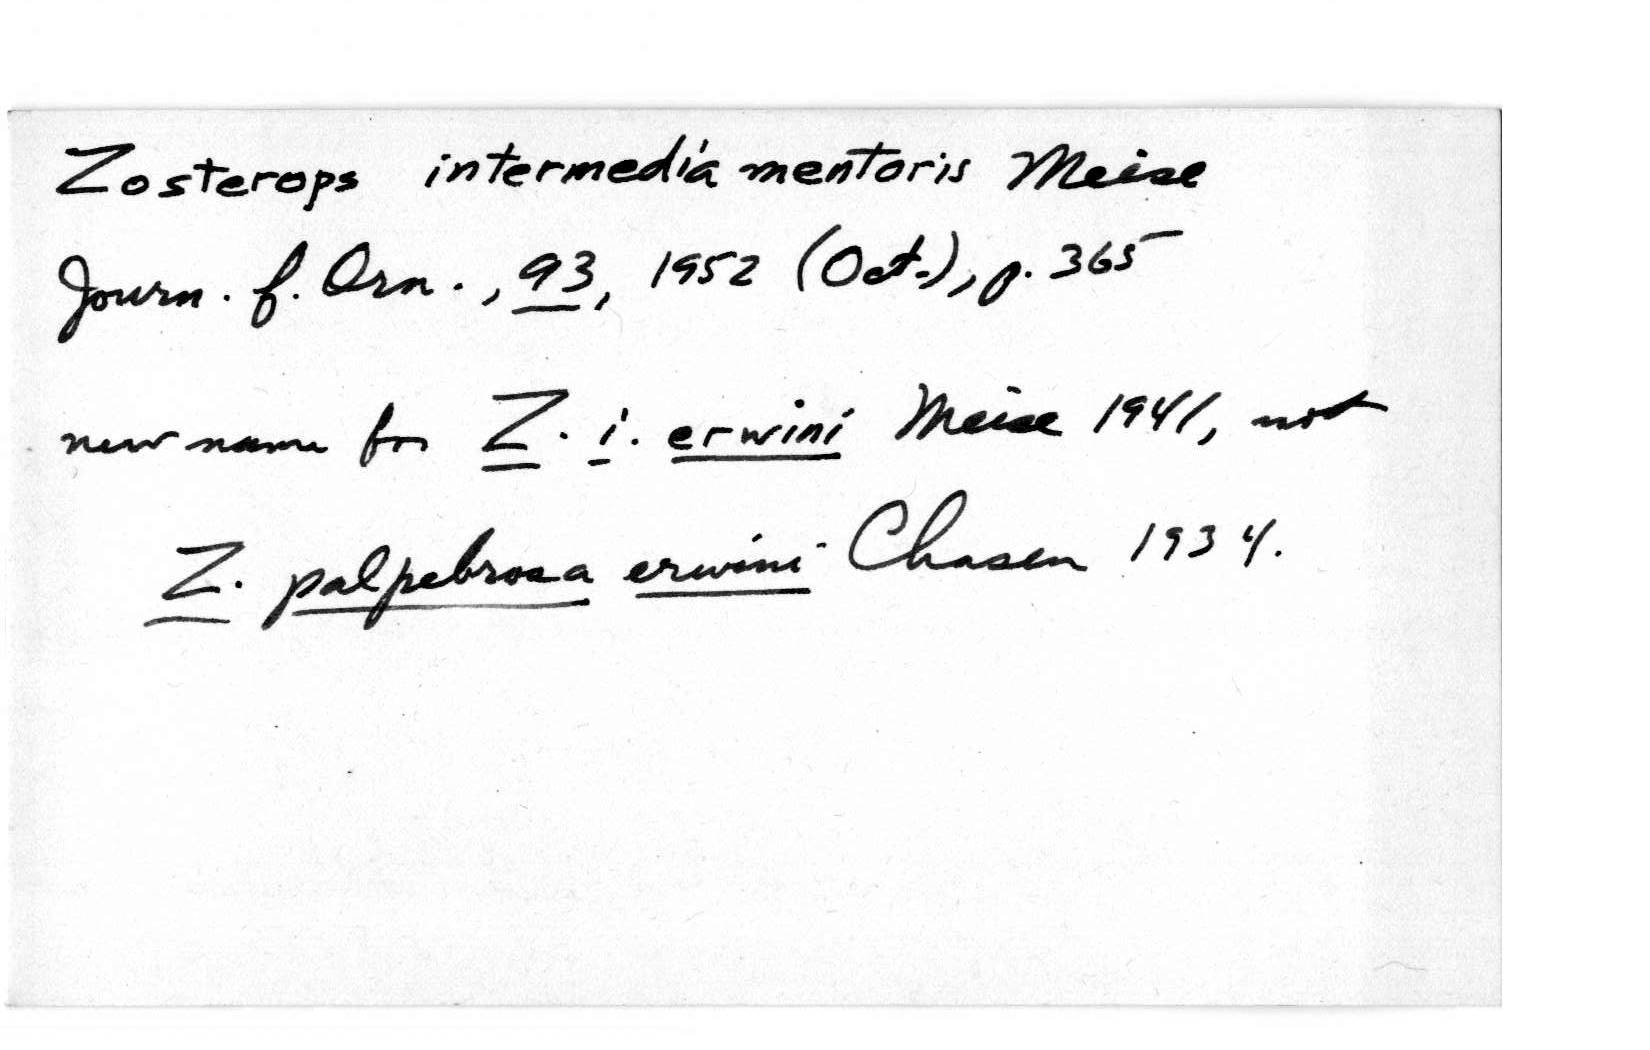 Zosterops intermedia mentoris Meise
Journ. f. Orn., 93, 1952 (Oct.), p. 365
new name for Z. i. erwini Meise 1941, not
Z. palpebrosa erwini Chasen 1934.